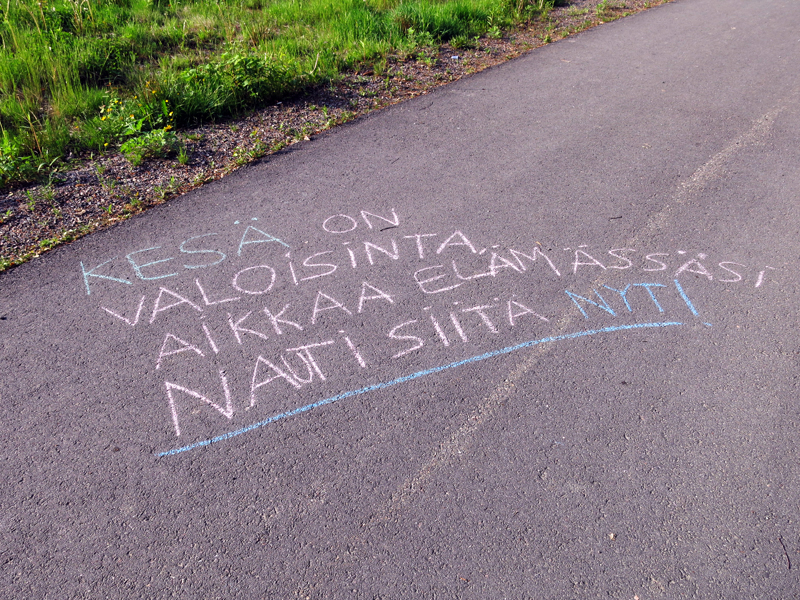 KESÄ ON
VALOISINTA
AIKKAA ELÄMÄSSÄSI
NAUTI SIITÄ NYT!